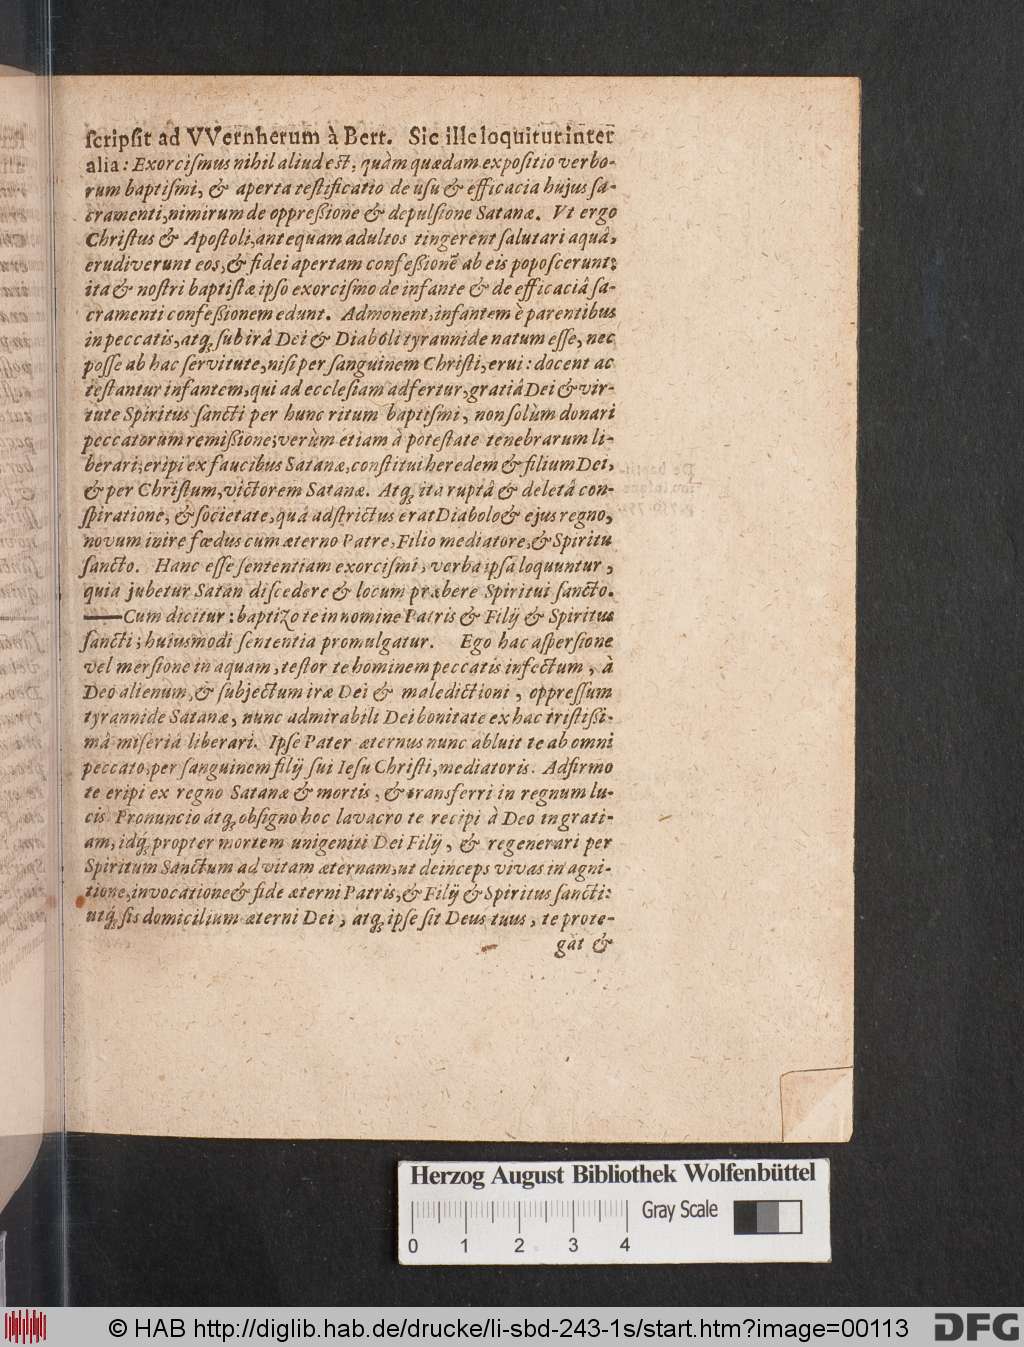 ſcripſit ad VVernherum à Bert. Sic ille loquitur inter
alia: Exorciſmus nihil aliud est, quàm quædam expoſitio verbo-
rum baptiſmi, & aperta teſtificatio de uſu & efficacia hujus ſa-
cramenti, nimirum de oppreßione & depulſione Satanæ. Vt ergo
Chriſtus & Apoſtoli, antequam adultos tingerent ſalutari aquâ,
erudiverunt eos, & fidei apertam confeßionē ab eis popoſcerunt;
ita & noſtri baptiſtæ ipſo exorciſmo de infante & de efficaciâ ſa-
cramenti confeßionem edunt. Admonent, infantem è parentibus
in peccatis, atq; ſub irâ Dei & Diaboli tyrannide natum eſſe, nec
poſſe ab hac ſervitute, niſi per ſanguinem Chriſti, erui: docent ac
teſtantur infantem, qui ad eccleſiam adfertur, gratiâ Dei & vir-
tute Spiritus ſancti per hunc ritum baptiſmi, non ſolùm donari
peccatorum remißione; verùm etiam à poteſtate tenebrarum li-
berari; eripi ex faucibus Satanæ, conſtitui heredem & filium Dei,
& per Chriſtum, victorem Satanæ. Atq; ita ruptâ & deletâ con-
ſpiratione, & ſocietate, quâ adſtrictus erat Diabolo & ejus regno,
novum inire fœdus cum æterno Patre, Filio mediatore, & Spiritu
ſancto. Hanc eſſe ſententiam exorciſmi, verba ipſa loquuntur,
quia jubetur Satan diſcedere & locum præbere Spiritui ſancto.
— Cum dicitur: baptizo te in nomine Patris & Filij & Spiritus
ſancti; huiusmodi ſententia promulgatur. Ego hac aſperſione
vel merſione in aquam, teſtor te hominem peccatis infectum, à
Deo alienum, & ſubjectum iræ Dei & maledictioni, oppreſſum
tyrannide Satanæ, nunc admirabili Dei bonitate ex hac triſtißi-
mâ miſeriâ liberari. Ipſe Pater æternus nunc abluit te ab omni
peccato, per ſanguinem filij ſui Ieſu Chriſti, mediatoris. Adfirmo
te eripi ex regno Satanæ & mortis, & transferri in regnum lu-
cis. Pronuncio atq; obſigno hoc lavacro te recipi à Deo in grati-
am, idq; propter mortem unigeniti Dei Filij, & regenerari per
Spiritum Sanctum ad vitam æternam, ut deinceps vivas in agni-
tione, invocatione & fide æterni Patris, & Filij & Spiritus ſancti:
utq; ſis domicilium æterni Dei, atq; ipſe ſit Deus tuus, te prote-
gat &
Herzog August Bibliothek Wolfenbüttel
Gray Scale
0 1 2 3 4
© HAB http://diglib.hab.de/drucke/li-sbd-243-1s/start.htm?image=00113
DFG